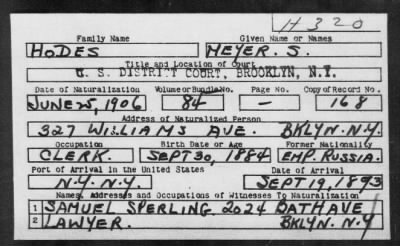 H 320
Family Name Given Name or Names
HODES MEYER. S.
Title and Location of Court
U. S. DISTRICT COURT, BROOKLYN, N.Y.
Date of Naturalization Volume or Bundle No. Page No. Copy of Record No.
JUNE 25, 1906 84 — 168
Address of Naturalized Person
327 WILLIAMS AVE. BKLYN. N.Y.
Occupation Birth Date or Age Former Nationality
CLERK. SEPT 30, 1884 EMP. RUSSIA.
Port of Arrival in the United States Date of Arrival
N.Y. N.Y. SEPT 19, 1893
Names, Addresses and Occupations of Witnesses To Naturalization
1 SAMUEL SPERLING 2024 BATH AVE
2 LAWYER. BKLYN. N.Y.